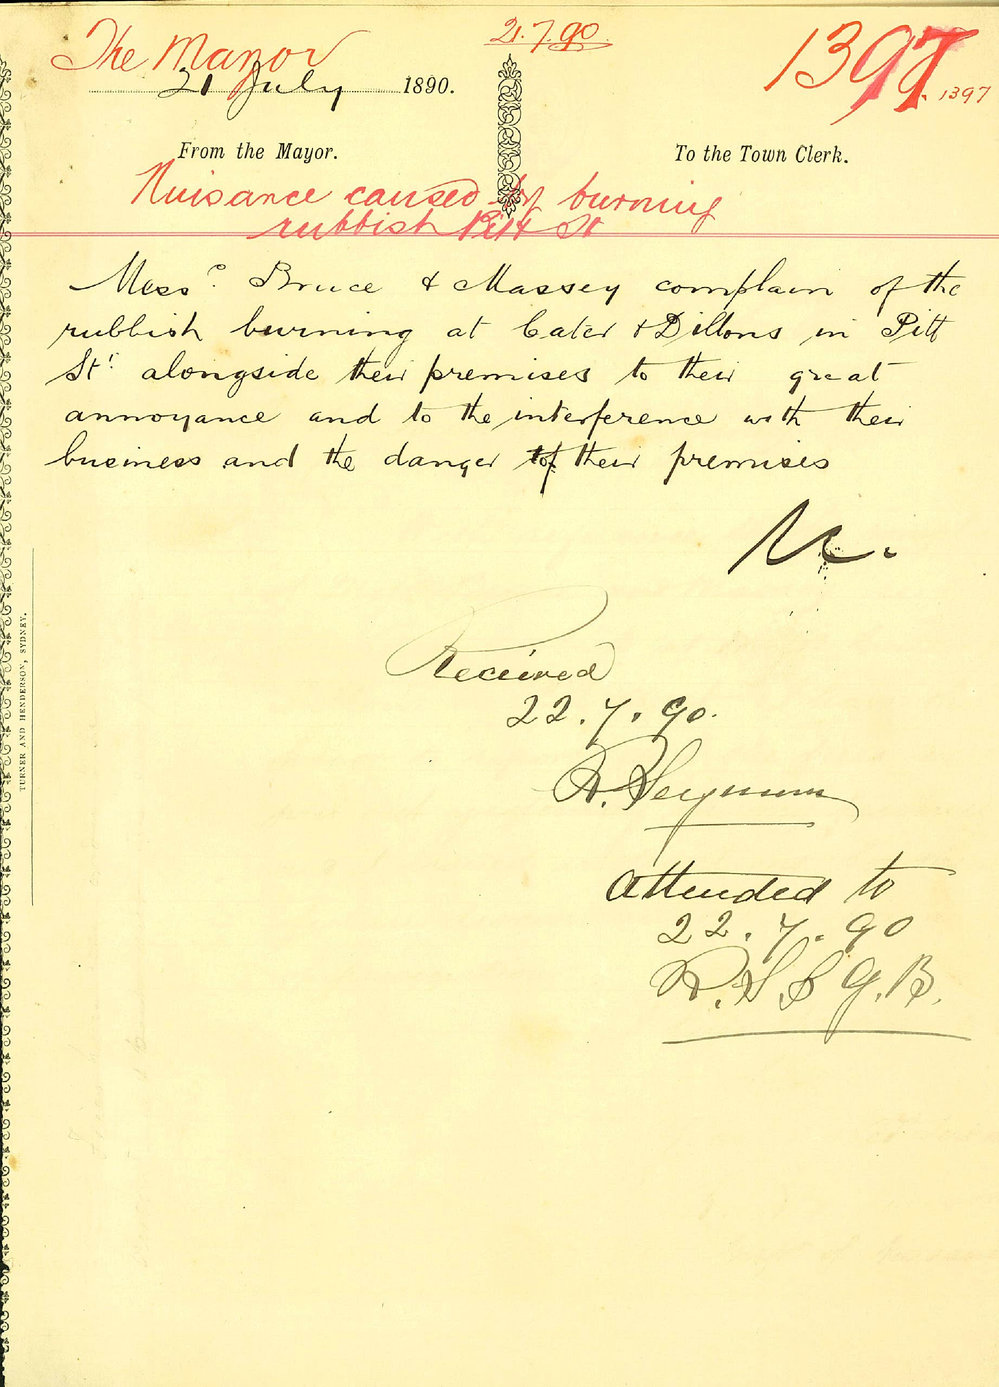 The Mayor
21.7.90
1397
21 July 1890.
1397
From the Mayor.
To the Town Clerk.
Nuisance caused by burning
rubbish Pitt St
Messrs. Bruce & Massey complain of the
rubbish burning at Cater & Dillons in Pitt
St. alongside their premises to their great
annoyance and to the interference with their
business and the danger of their premises
Received
22.7.90.
R. Seymour
Attended to
22.7.90
R.S.
TURNER AND HENDERSON, SYDNEY.